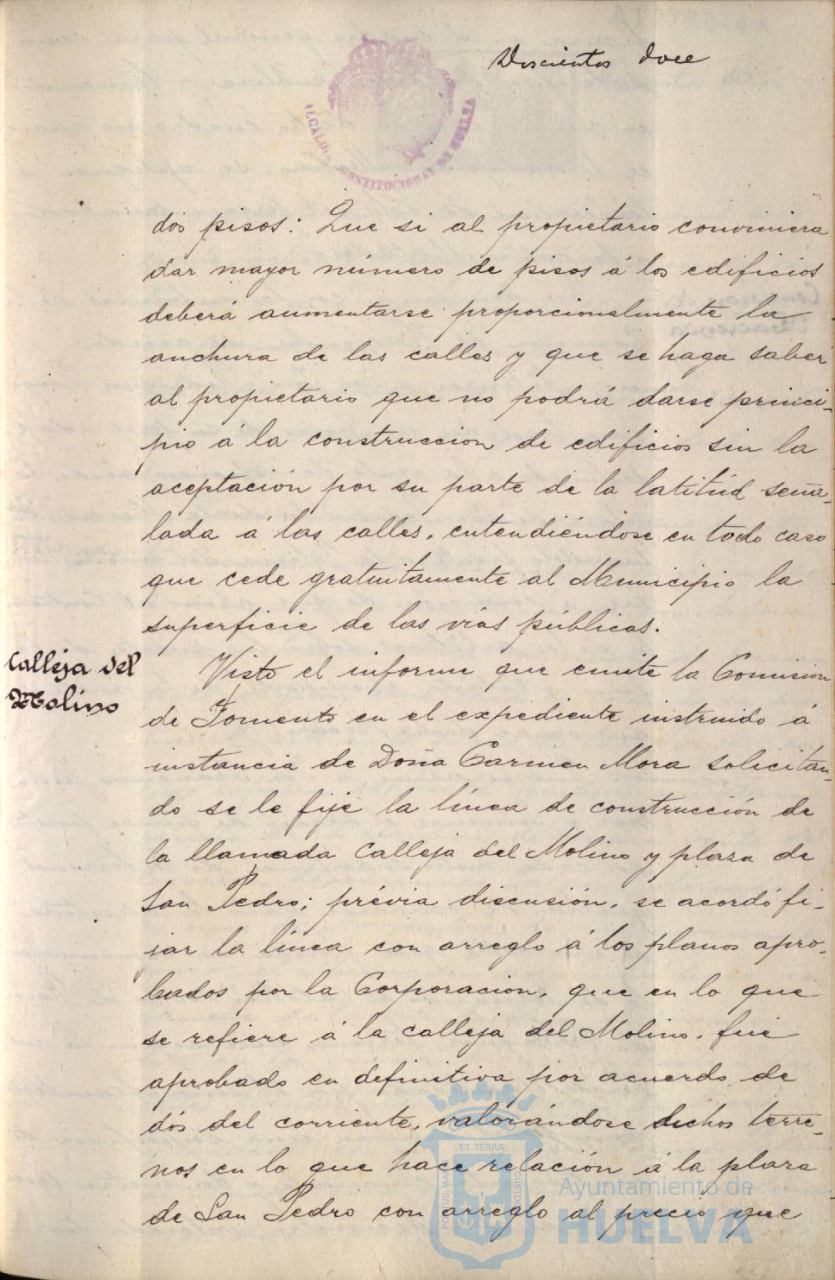 Doscientos doce
ALCALDIA CONSTITUCIONAL DE HUELVA
dós pisos: Que si al propietario conviniera
dar mayor número de pisos á los edificios
deberá aumentarse proporcionalmente la
anchura de las calles y que se haga saber
al propietario que no podrá darse princi-
pio á la construccion de edificios sin la
aceptación por su parte de la latitúd seña-
lada á las calles, entendiéndose en todo caso
que cede gratuitamente al Municipio la
superficie de las vías públicas.
Calleja del
Molino
Visto el informe que emite la Comision
de Fomento en el expediente instruido á
instancia de Doña Carmen Mora solicitan-
do se le fije la línea de construcción de
la llamada Calleja del Molino y plaza de
San Pedro; prévia discusión, se acordó fi-
jar la línea con arreglo á los planos apro-
bados por la Corporacion, que en lo que
se refiere á la calleja del Molino, fué
aprobado en definitiva por acuerdo de
dós del corriente, valorándose dichos terre-
nos en lo que hace relación á la plaza
de San Pedro con arreglo al precio que
PORTUS MARIS ET TERRÆ CUSTODIA
Ayuntamiento de
HUELVA